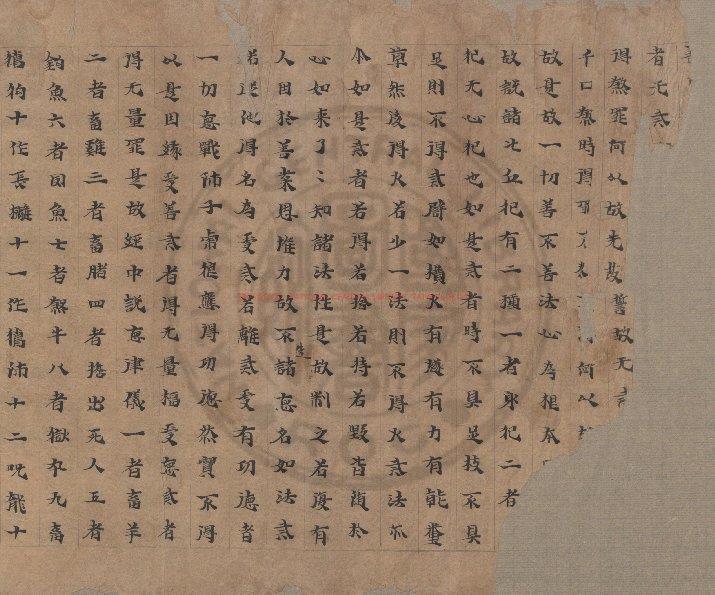 者无戒
得煞罪何以故先發誓故无
千口煞時得 何以
故是故一切善不善法心為根本
故說諸比丘犯有二種一者身犯二者
犯无心犯也如是戒者時不具足枝不具
足則不得戒辟如攢火有燧有力有乹糞
草然後得火若少一法則不得火戒法亦
尒如是戒者若得若捨若持若毀皆隨於
心如来了〻知諸法性是故制之若復有
人因於善業思惟力故不作諸惡名如法戒
若從他得名為受戒若離戒受有功德者
一切惡戰師子虎狼應得功德然實不得
以是因緣受善戒者得无量福受惡戒者
得无量罪是故經中說惡律儀一者畜羊
二者畜雞三者畜猪四者擔出死人五者
釣魚六者田魚七者煞牛八者獄卒九畜
獦狗十作長摾十一作獦師十二呪龍十